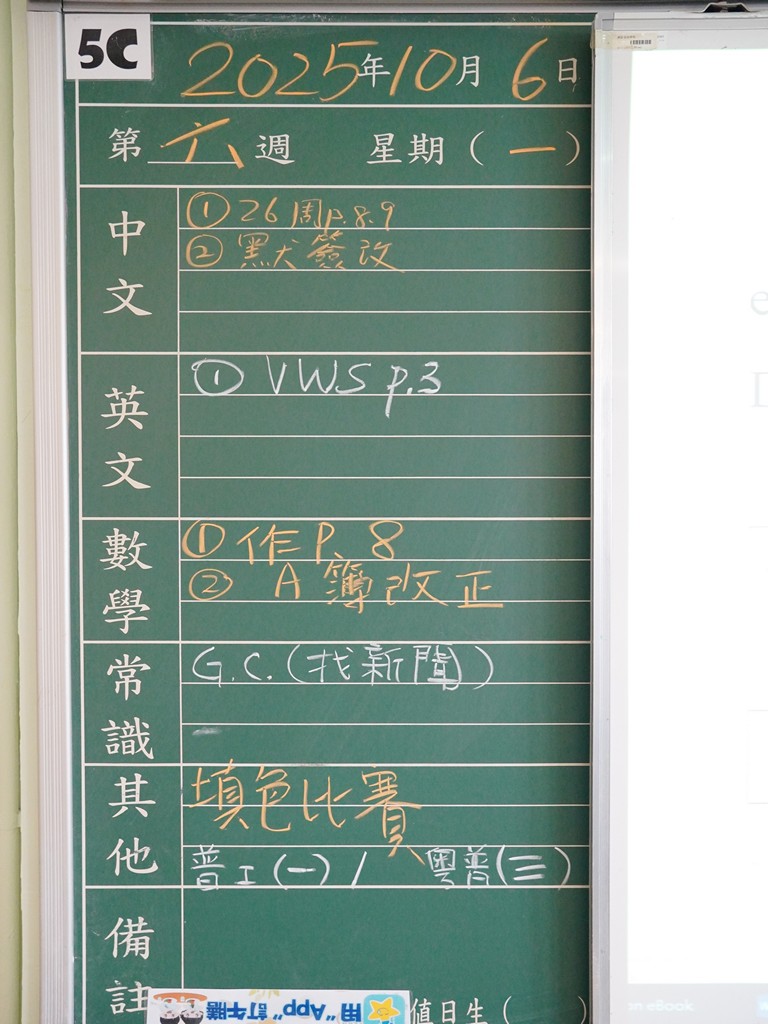 5C
2025年10月6日
第六週 星期(一)
中文
① 26周p.8.9
② 默犬簽改
英文
① VWS p.3
數學
① 作P. 8
② A簿改正
常識
G.C.(找新聞)
其他
填色比賽
普工(一) / 粵普(三)
備註
用"App"訂午膳
值日生(
eBook